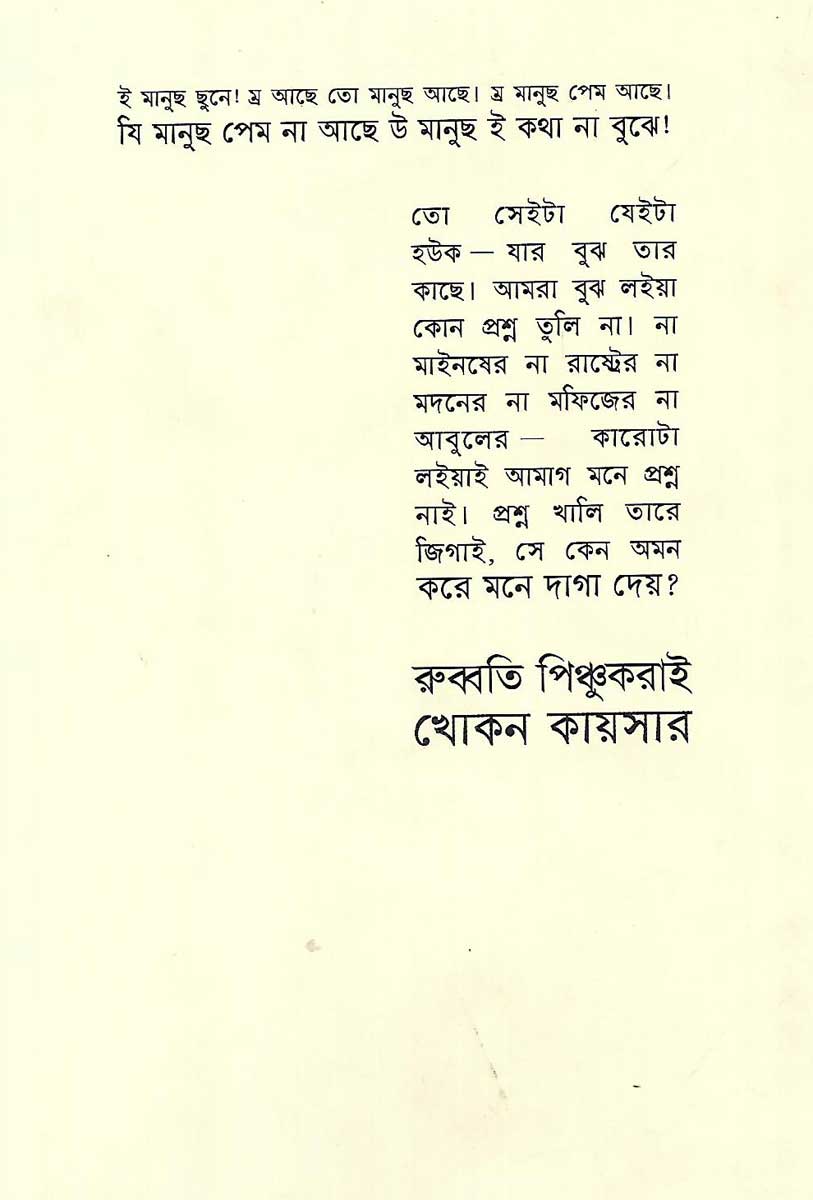 ই মানুছ ছুনে! ম্র আছে তো মানুছ আছে। ম্র মানুছ পেম আছে।
যি মানুছ পেম না আছে উ মানুছ ই কথা না বুঝে!
তো সেইটা যেইটা
হউক — যার বুঝ তার
কাছে। আমরা বুঝ লইয়া
কোন প্রশ্ন তুলি না। না
মাইনষের না রাষ্ট্রের না
মদনের না মফিজের না
আবুলের — কারোটা
লইয়াই আমাগ মনে প্রশ্ন
নাই। প্রশ্ন খালি তারে
জিগাই, সে কেন অমন
করে মনে দাগা দেয়?
রুব্বতি পিঞ্চুকরাই
খোকন কায়সার